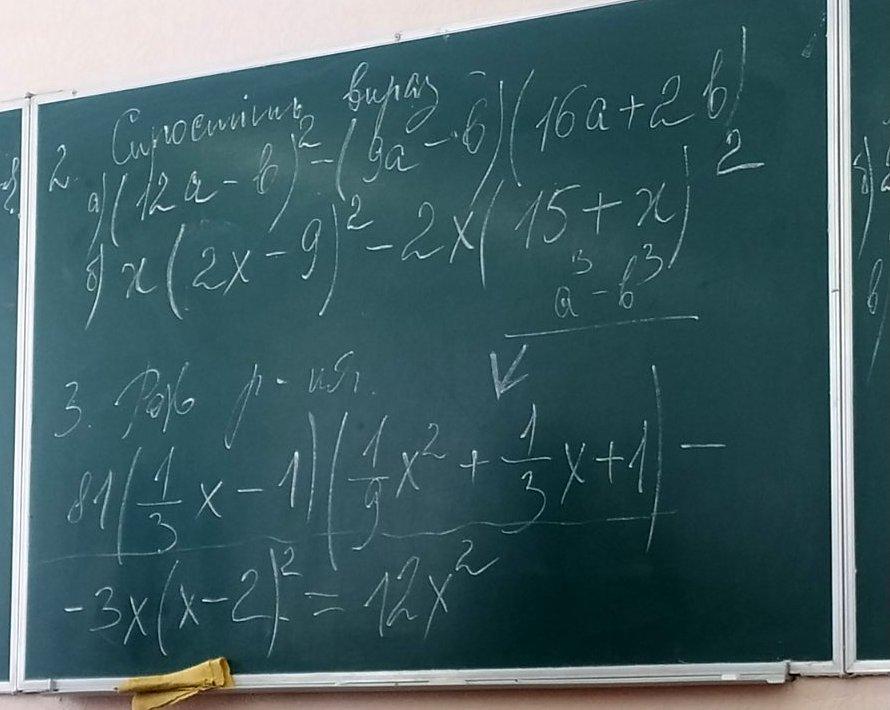 2. Спростіть вираз
а) (12a - b)² - (9a - b)(16a + 2b)
б) x(2x - 9)² - 2x(15 + x)²
a³ - b³
3. Розв р-ня.
81(1/3 x - 1)(1/9 x² + 1/3 x + 1) -
- 3x(x - 2)² = 12x²